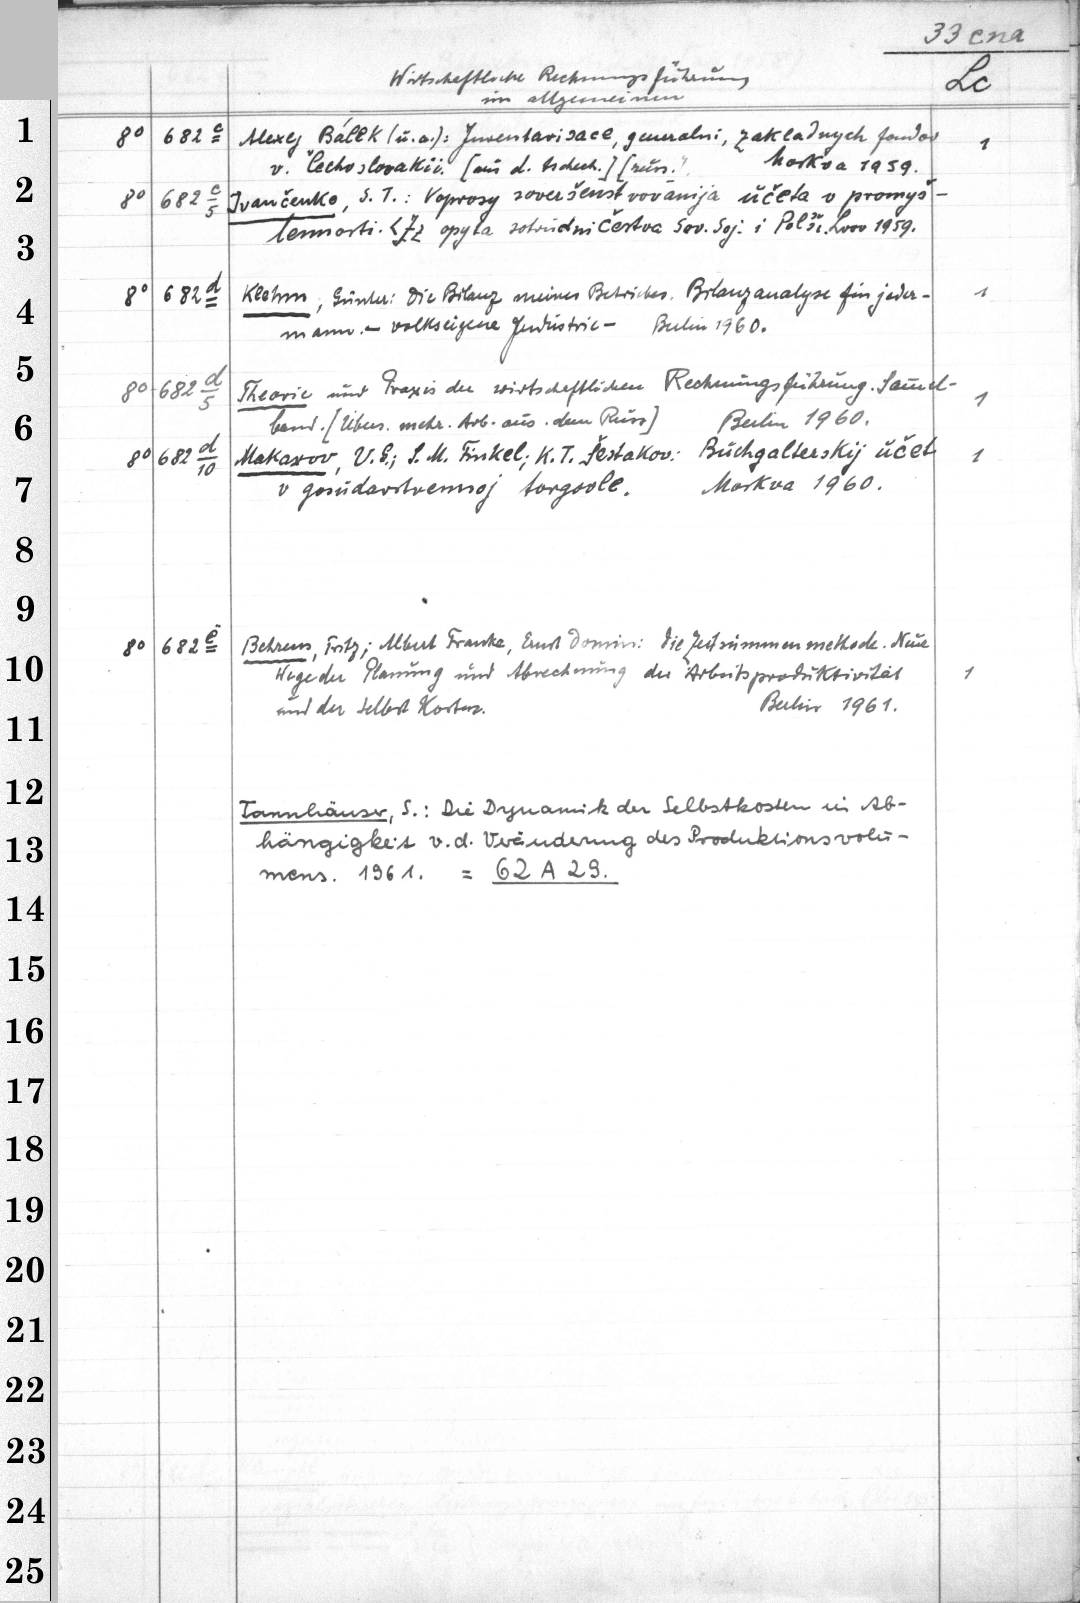 33 cna
Lc
Wirtschaftliche Rechnungsführung
im allgemeinen
1 8° 682 c Alexej Bálek (u.a.): Inventarisace, generalni, zakladnych fondov 1
v. Čechoslovakii. [aus d. tschech.] [russ.] Moskva 1959.
2 8° 682 c/5 Ivančenko, S. T.: Voprosy soveršenstvovanija učeta v promyš-
3 lennosti. Iz opyta sotrudničestva Sov. Soj. i Polši. Lvov 1959.
8° 682 d Klehm, Günter: Die Bilanz meines Betriebes. Bilanzanalyse für jeder- 1
4 mann. – volkseigene Industrie – Berlin 1960.
5 8° 682 d/5 Theorie und Praxis der wirtschaftlichen Rechnungsführung. Samel- 1
6 band. [Übers. mehr. Arb. aus dem Russ] Berlin 1960.
8° 682 d/10 Makarov, V.G.; S. M. Finkel; K. T. Šestakov: Buchgalterskij učet 1
7 v gosudarstvennoj torgovle. Moskva 1960.
8
9
8° 682 e Behrens, Fritz; Albert Franke, Ernst Domin: Die Zeitsummenmethode. Neue
10 Wege der Planung und Abrechnung der Arbeitsproduktivität 1
11 und der Selbst Kosten. Berlin 1961.
12 Tannhäuser, S.: Die Dynamik der Selbstkosten in Ab-
13 hängigkeit v. d. Veränderung des Produktionsvolu-
mens. 1961. = 62 A 29.
14
15
16
17
18
19
20
21
22
23
24
25